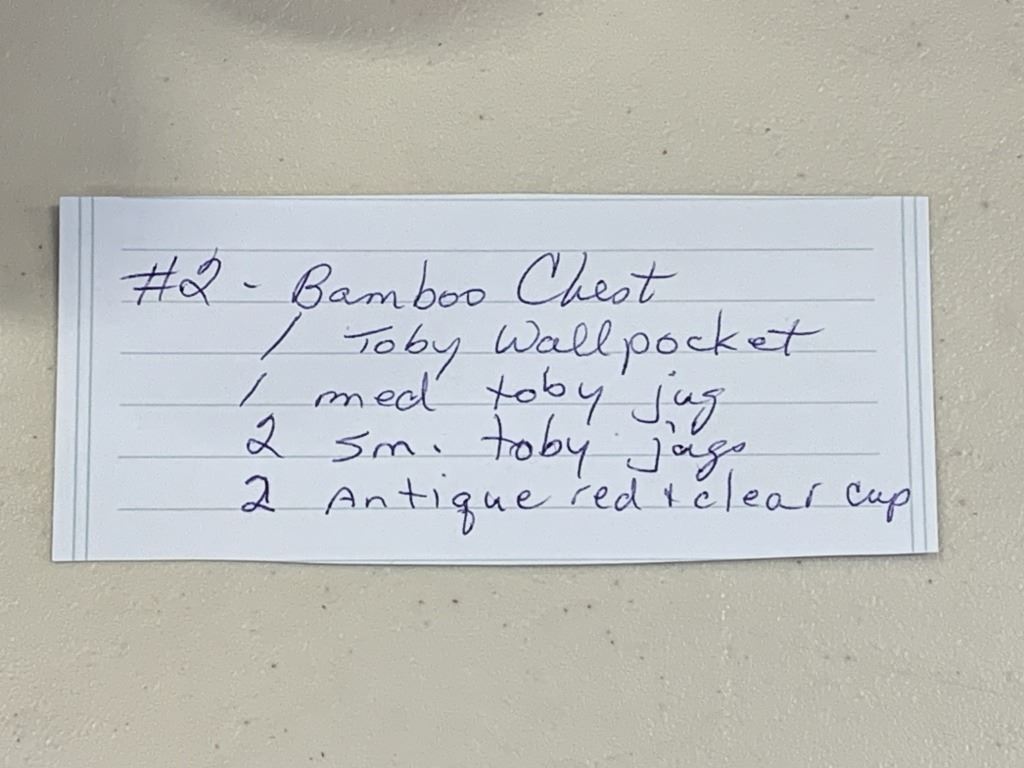 #2 - Bamboo Chest
1 Toby Wallpocket
1 med toby jug
2 sm. toby jugs
2 Antique red + clear cup